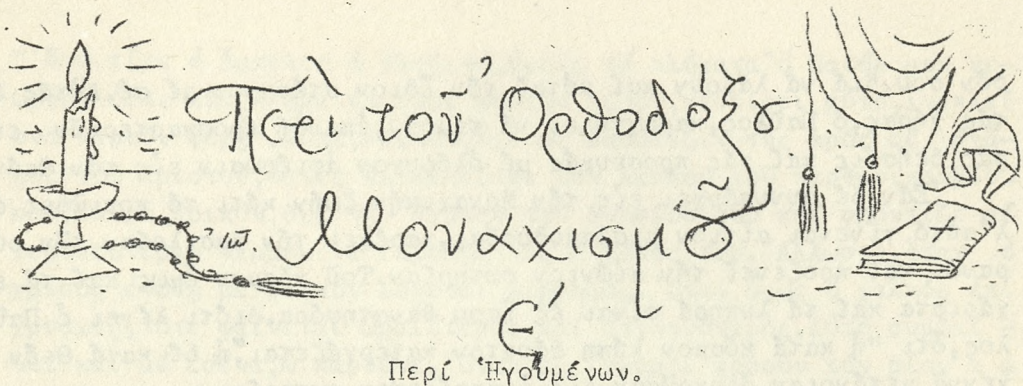 Περὶ τοῦ Ὀρθοδόξου
Μοναχισμοῦ
Ἰῶ
Ε΄
Περί Ἡγουμένων.